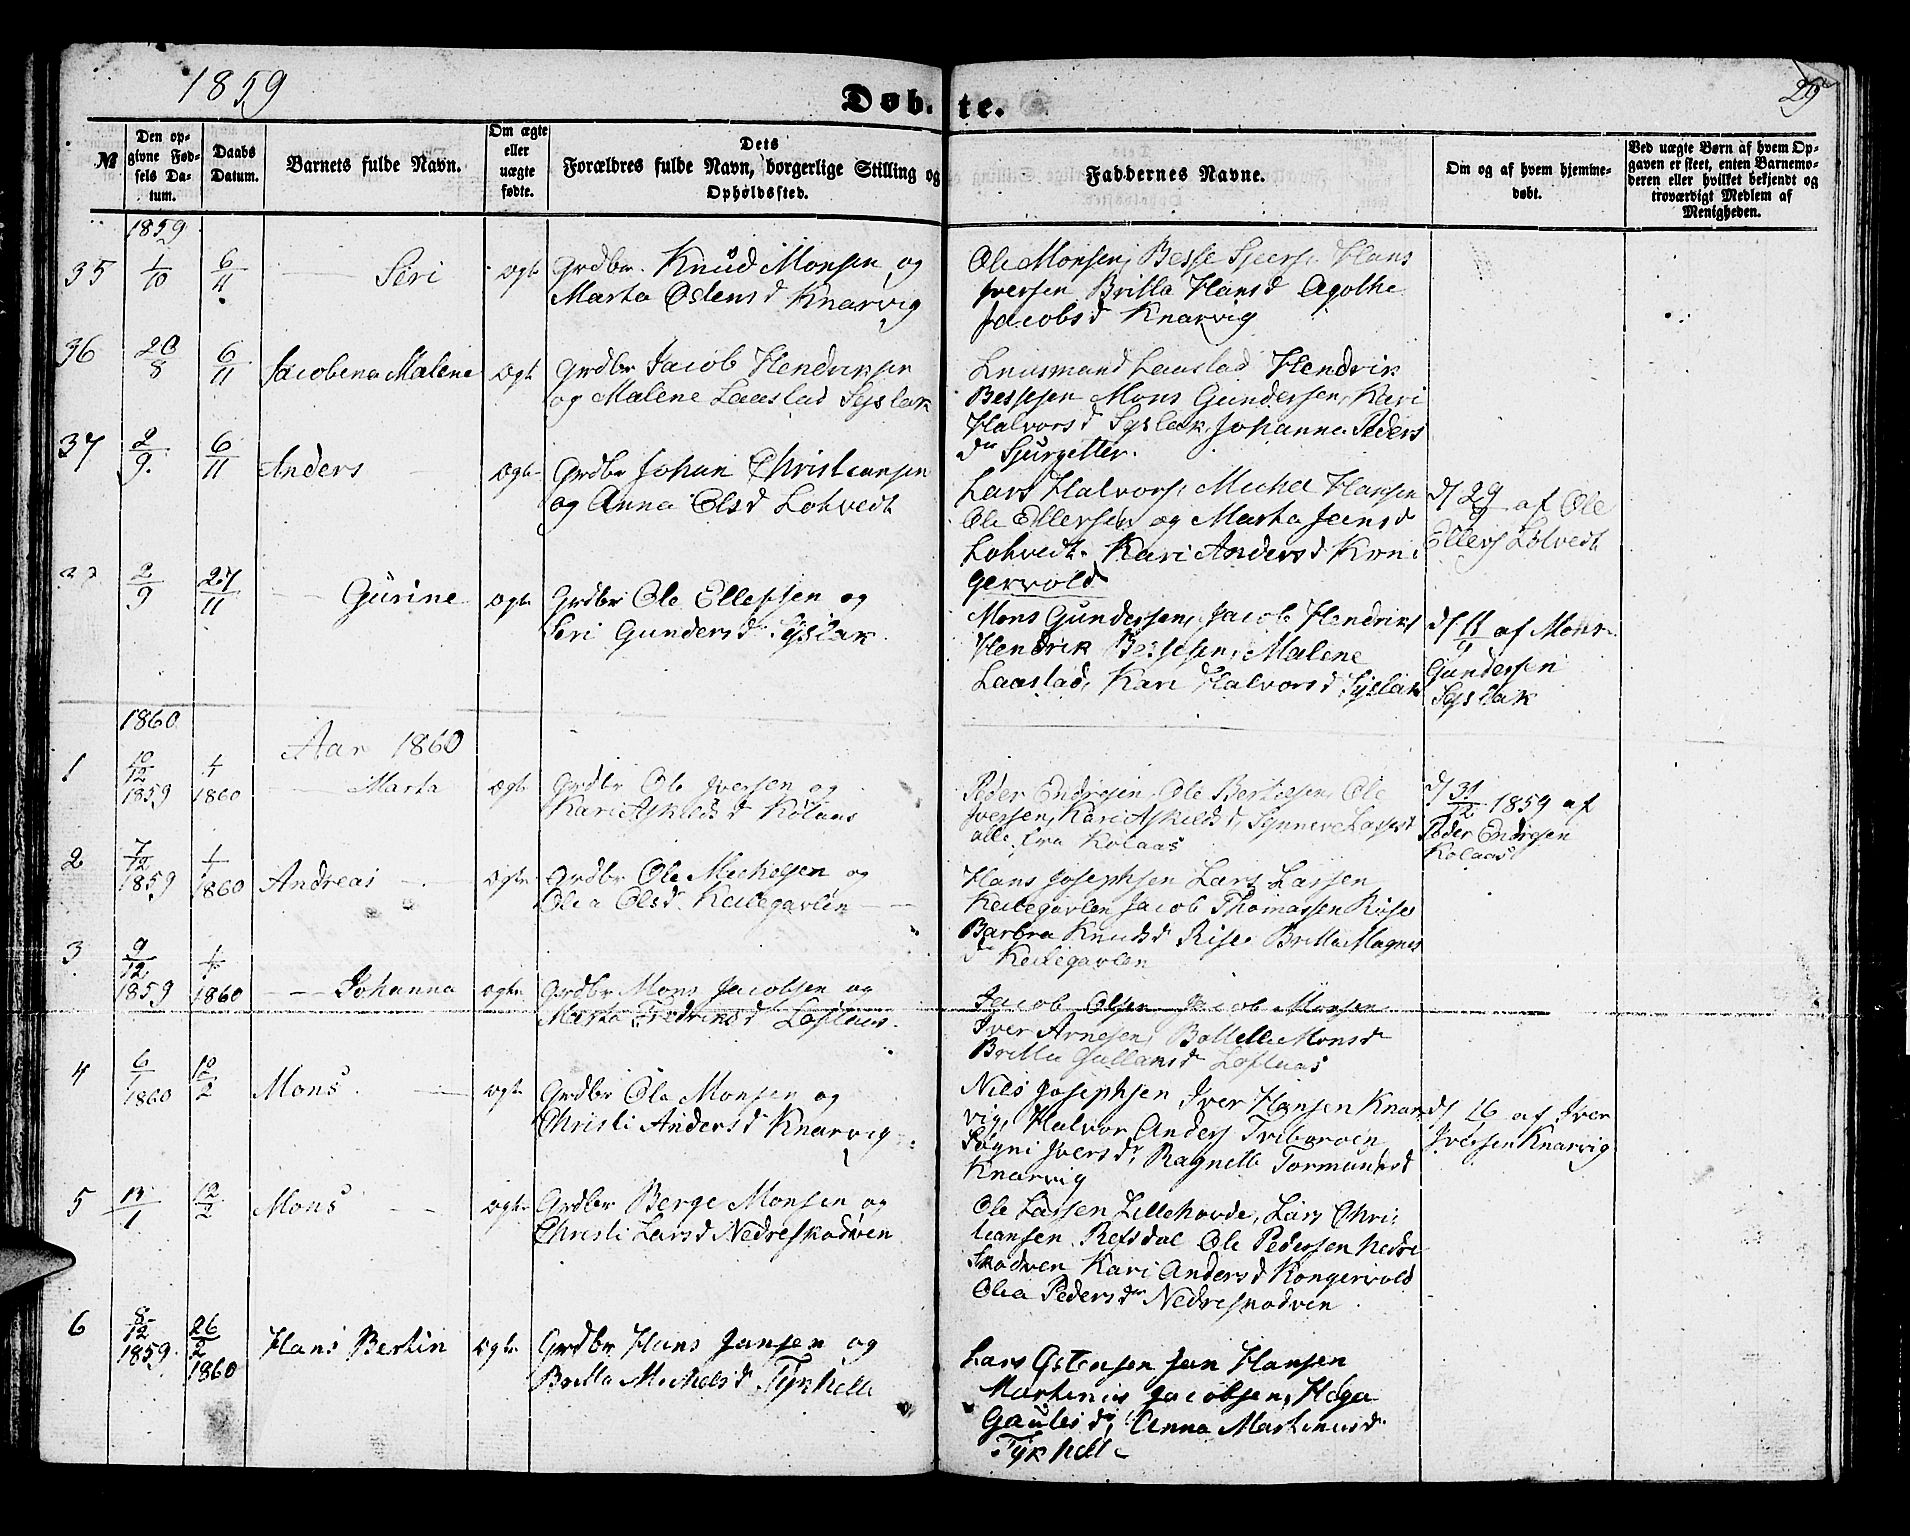 1859
Døbte.
29
№
Den opgivne Fødsels Datum.
Daabs Datum.
Barnets fulde Navn.
Om ægte eller uægte fødte.
Dets Forældres fulde Navn, borgerlige Stilling og Opholdssted.
Faddernes Navne.
Om og af hvem hjemmedøbt.
Ved uægte Børn af hvem Opgaven er skeet, enten Barnemoderen eller hvilket bekjendt og troværdigt Medlem af Menigheden.
1859
35 1/10 6/11 Seri ægte Grdbr. Knud Monsen og
Marta Ostensd Knarvig
Ole Monsen, Besse Sjurs, Hans
Iversen Britta Hansd Agothe
Jacobsd Knarvig
36 20/8 6/11 Jacobena Malene ægte Grdbr Jacob Hendriksen
og Malene Laastad Syslak
Laastad Hendrik
Bessesen Mons Gundersen, Kari
Halvorsd Syslak, Johanna Peders
dr Sjurzetter.
37 2/9 6/11 Anders ægte Grdbr Johan Christiansen
og Anna Olsd Lohvedt
Lars Halvors, Michel Hansen
Ole Ellersen og Marta Jensd
Lohvedt. Kari Andersd Kon
gervold
d/ 29/9 af Ole
Ellers Lohvedt
2/9 27/11 Gurine ægte Grdbr Ole Ellefsen og
Seri Gundersd Syslak.
Mons Gundersen, Jacob Hendriks
Hendrik Bessesen, Malene
Laastad, Kari Halvorsd Syslak
d/ 11/9 af Mons
Gundersen
Syslak
1860
Aar 1860
1 10/12 1859 1/1 1860 Marta ægte Grdbr Ole Iversen og
Kari Askildsd Kolaas
Peder Endresen, Ole Bertesen, Ole
Iversen, Kari Askildsd, Synneve Larsd
alle fra Kolaas
d/ 31/12 1859 af
Peder Endresen
Kolaas
2 7/12 1859 1/1 1860 Andreas ægte Grdbr Ole Michelsen og
Olea Olsd Keilegavlen
Hans Josephsen Lars Larsen
Keilegavlen Jacob Thomassen Rise
Barbra Knudsd Rise, Britta Magnes
dr Keilegavlen
3 9/12 1859 1/1 1860 Johanna ægte Grdbr Mons Jacobsen og
Marta Fredriksd Loflaas.
Jacob Olsen Jacob Monsen
Iver Arnesen, Monsd
Britta Loflaas
4 6/1 1860 10/2 Mons ægte Grdbr Ole Monsen og
Christi Andersd Knarvig
Nils Josephsen Iver Hansen Knar
vig, Halvor Anders Triboroen
Søgni Iversdr, Ragnelle Tormundsd
Knarvig
d/ 16 af Iver
Iversen Knarvig
5 13/1 10/2 Mons ægte Grdbr Berge Monsen og
Christi Larsd Nedreskodven
Ole Larsen Lillehovde, Lars Chris
tiansen Refsdal Ole Pedersen Nedre
Skodven Kari Andersd Kongervold
Olea Pedersdr Nedreskodven
6 8/12 1859 26/2 1860 Hans Bertin ægte Grdbr Hans Jansen og
Britta Michelsd Fykhelle
Lars Ostensen Jan Hansen
Martinus Jacobsen, Helga
Gaulesdr, Anna Martinusd
Fykhelle